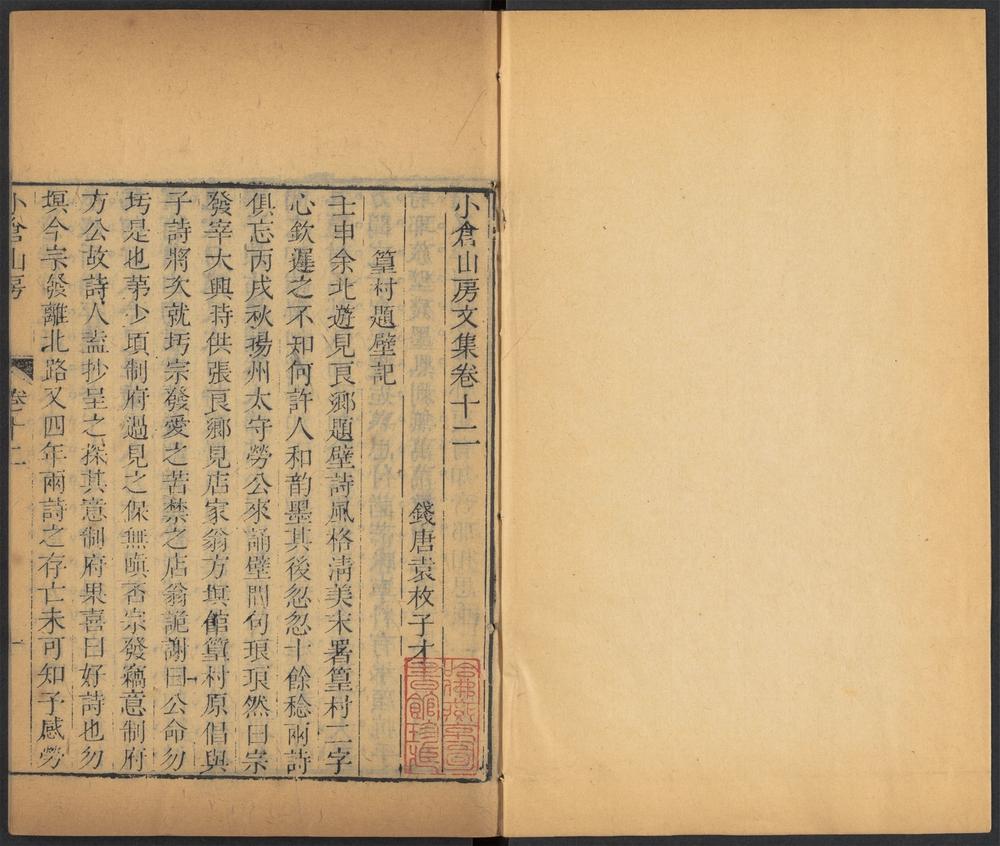 小倉山房文集卷十二
錢唐袁枚子才
篁村題壁記
壬申余北遊見良鄉題壁詩風格清美末署篁村二字
心欽遲之不知何許人和韵墨其後忽忽十餘稔兩詩
俱忘丙戌秋揚州太守勞公來誦壁間句琅琅然曰宗
發宰大興時供張良鄉見店家翁方塓館篁村原倡與
子詩將次就圬宗發愛之苦禁之店翁詭謝曰公命勿
圬是也第少頃制府過見之保無嗔否宗發竊意制府
方公故詩人盍抄呈之探其意制府果喜曰好詩也勿
塓今宗發離北路又四年兩詩之存亡未可知予感勞
小倉山房
卷十二
一
哈佛燕京圖書館珍藏